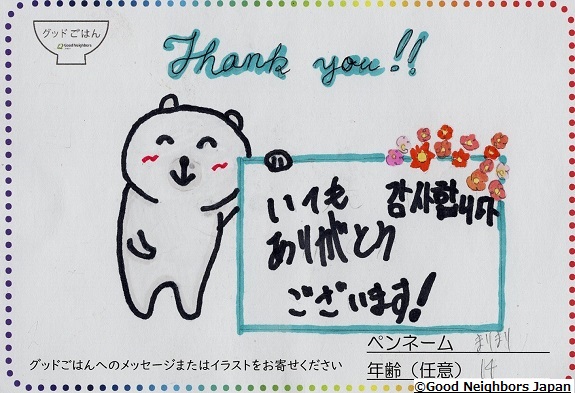 グッドごはん
Good Neighbors
Thank you!!
감사합니다
いつも
ありがとう
ございます!
ペンネーム まりまり
グッドごはんへのメッセージまたはイラストをお寄せください
年齢（任意） 14
©Good Neighbors Japan